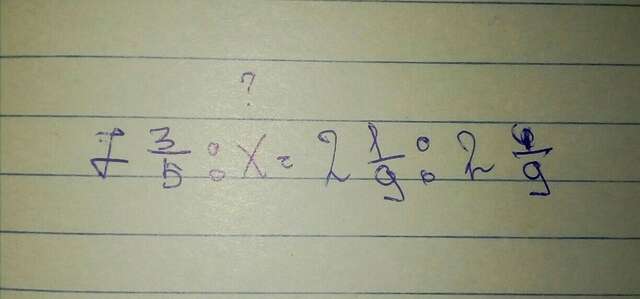 ?
7 3/5 : X = 2 1/9 : 2 /9